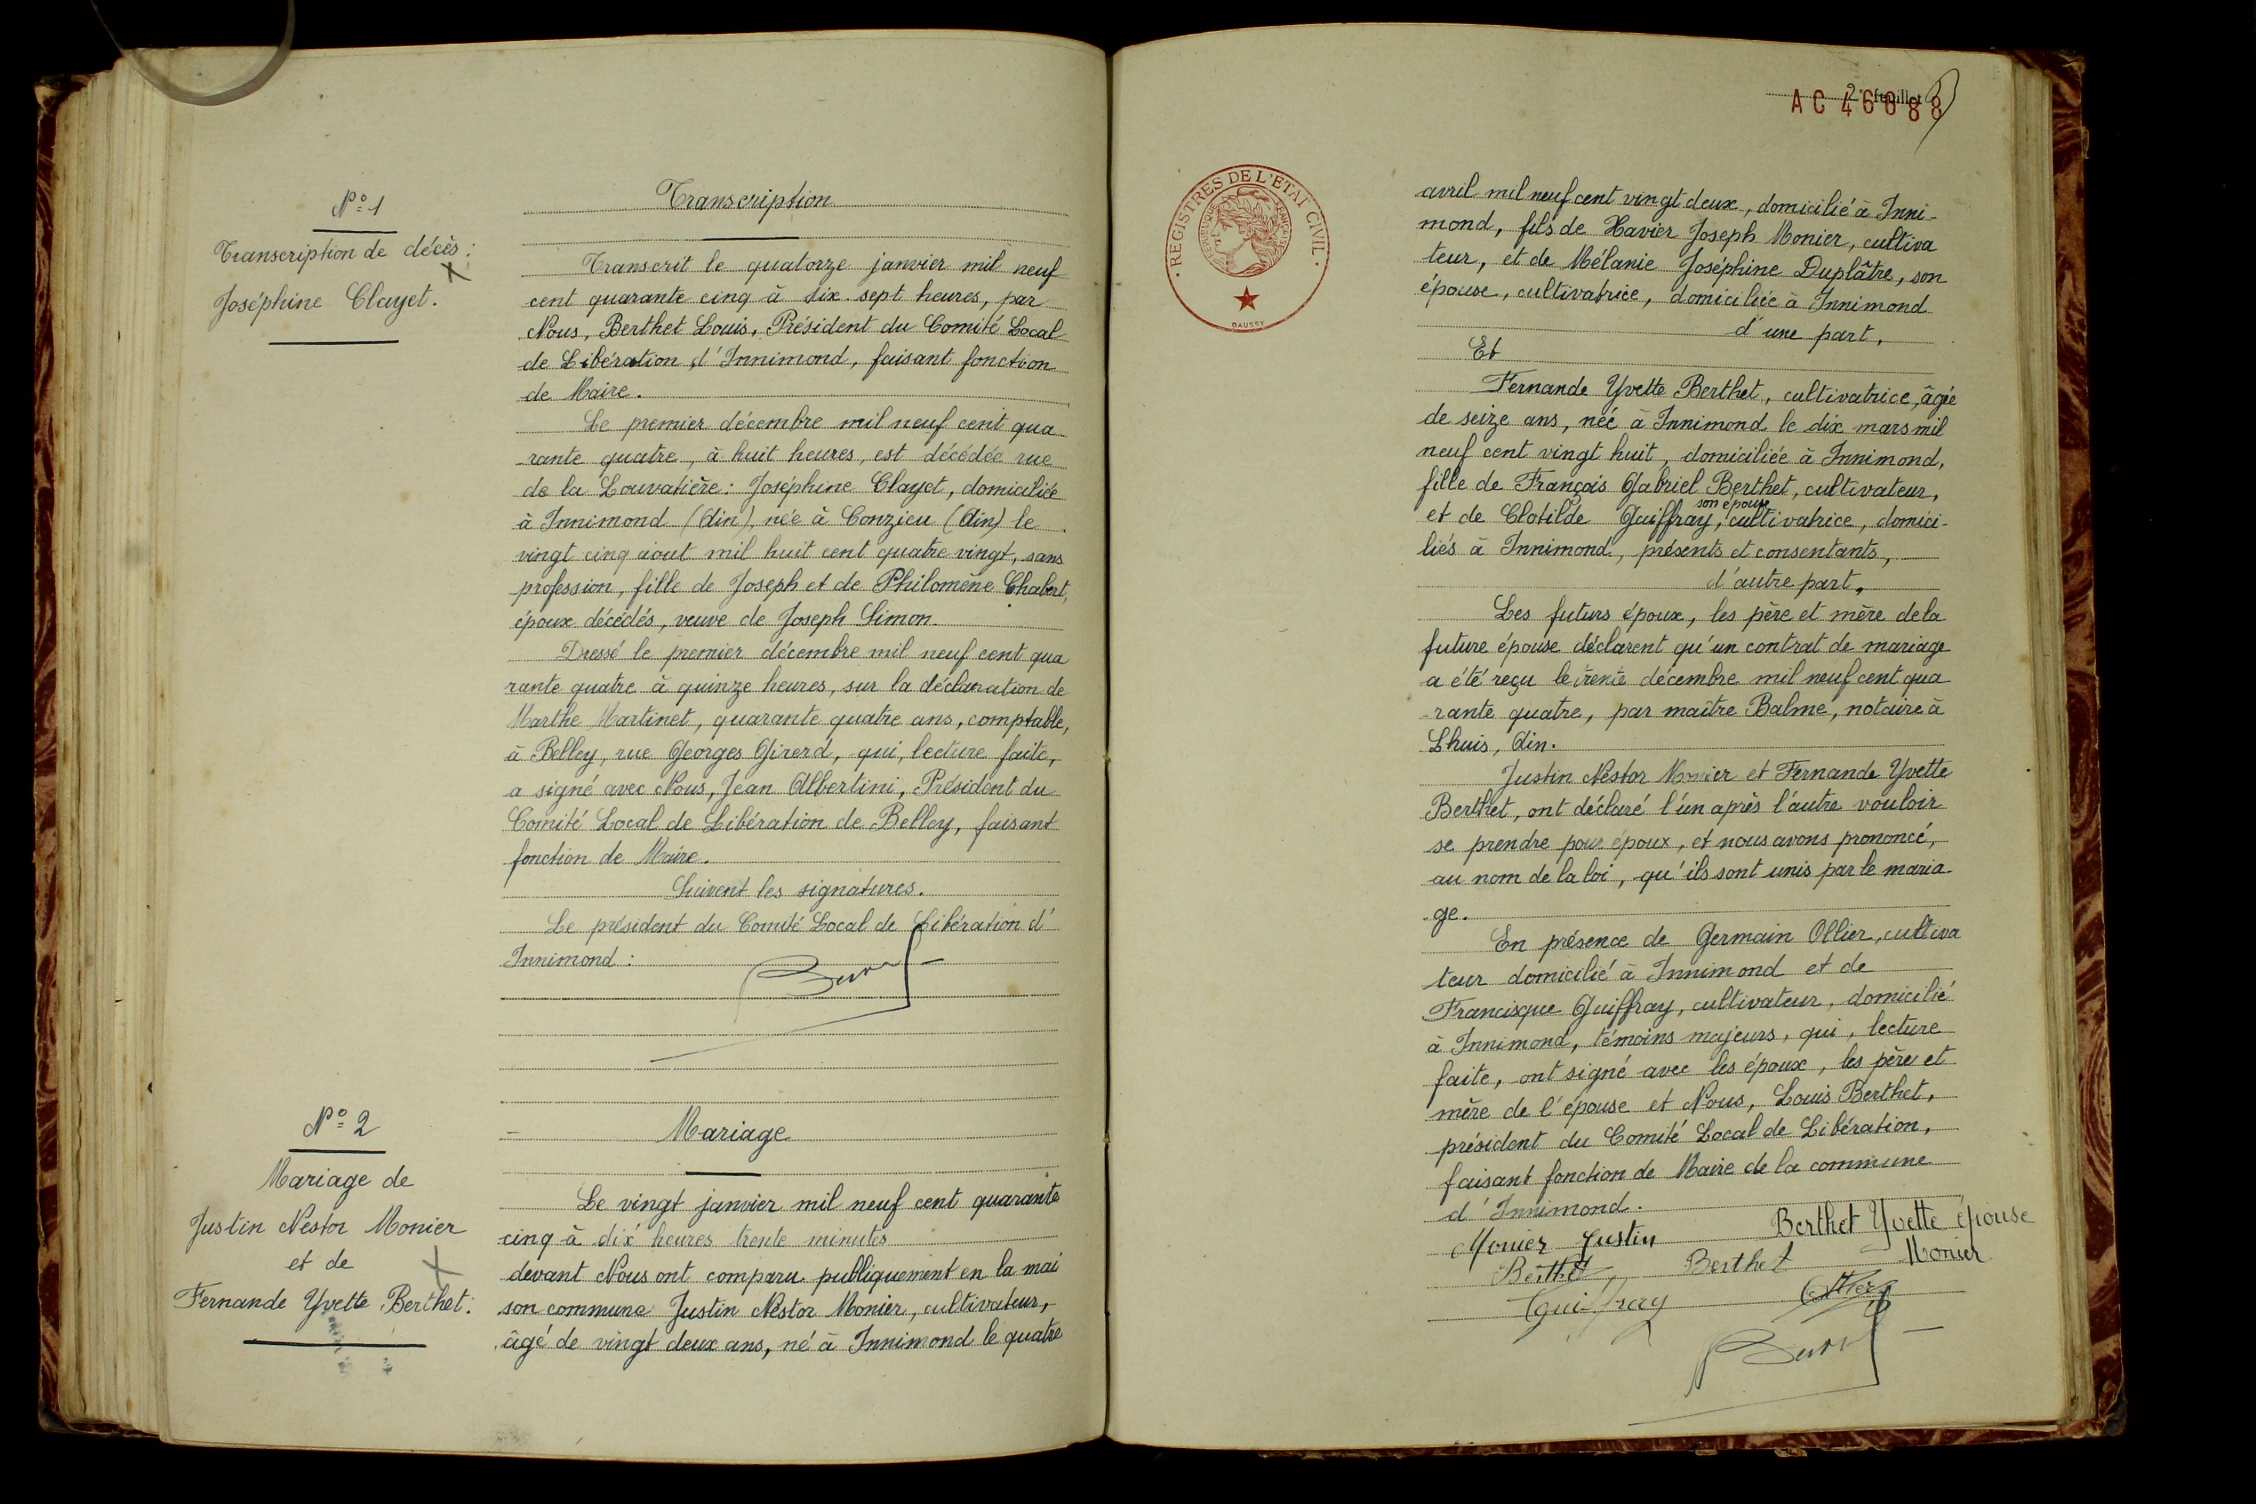 N° 1
Transcription de décès :
Joséphine Clayet.
Transcription
Transcrit le quatorze janvier mil neuf
cent quarante cinq à dix-sept heures, par
Nous, Berthet Louis, Président du Comité Local
de Libération d'Innimond, faisant fonction
de Maire.
Le premier décembre mil neuf cent qua
rante quatre, à huit heures, est décédée rue
de la Louvatière : Joséphine Clayet, domiciliée
à Innimond (Ain), née à Conzieu (Ain) le
vingt cinq aout mil huit cent quatre vingt, sans
profession, fille de Joseph et de Philomène Chabert,
époux décédés, veuve de Joseph Simon.
Dressé le premier décembre mil neuf cent qua
rante quatre à quinze heures, sur la déclaration de
Marthe Martinet, quarante quatre ans, comptable,
à Belley, rue Georges Girerd, qui, lecture faite,
a signé avec Nous, Jean Albertini, Président du
Comité Local de Libération de Belley, faisant
fonction de Maire.
Suivent les signatures.
Le président du Comité Local de Libération d'
Innimond :
N° 2
Mariage de
Justin Nestor Monier
et de
Fernande Yvette Berthet.
Mariage
Le vingt janvier mil neuf cent quarante
cinq à dix heures trente minutes
devant Nous ont comparu publiquement en la mai
son commune Justin Nestor Monier, cultivateur,
âgé de vingt deux ans, né à Innimond le quatre
2e feuillet
AC 46088
REGISTRES DE L'ETAT CIVIL
REPUBLIQUE FRANÇAISE
DAUSSY
avril mil neuf cent vingt deux, domicilié à Inni-
mond, fils de Xavier Joseph Monier, cultiva
teur, et de Mélanie Joséphine Duplâtre, son
épouse, cultivatrice, domiciliée à Innimond
d'une part,
Et
Fernande Yvette Berthet, cultivatrice, âgée
de seize ans, née à Innimond le dix mars mil
neuf cent vingt huit, domiciliée à Innimond,
fille de François Gabriel Berthet, cultivateur,
son épouse
et de Clotilde Guiffray, cultivatrice, domici-
liés à Innimond, présents et consentants,
d'autre part,
Les futurs époux, les père et mère de la
future épouse déclarent qu'un contrat de mariage
a été reçu le trente décembre mil neuf cent qua
-rante quatre, par maître Balme, notaire à
Lhuis, Ain.
Justin Nestor Monier et Fernande Yvette
Berthet, ont déclaré l'un après l'autre vouloir
se prendre pour époux, et nous avons prononcé,
au nom de la loi, qu'ils sont unis par le maria
-ge.
En présence de Germain Ollier, cultiva
teur domicilié à Innimond et de
Francisque Guiffray, cultivateur, domicilié
à Innimond, témoins majeurs, qui, lecture
faite, ont signé avec les époux, les père et
mère de l'épouse et Nous, Louis Berthet,
président du Comité Local de Libération,
faisant fonction de Maire de la commune
d'Innimond.
Monier Justin Berthet Yvette épouse
Berthet Berthet Monier
Guiffray Ollier